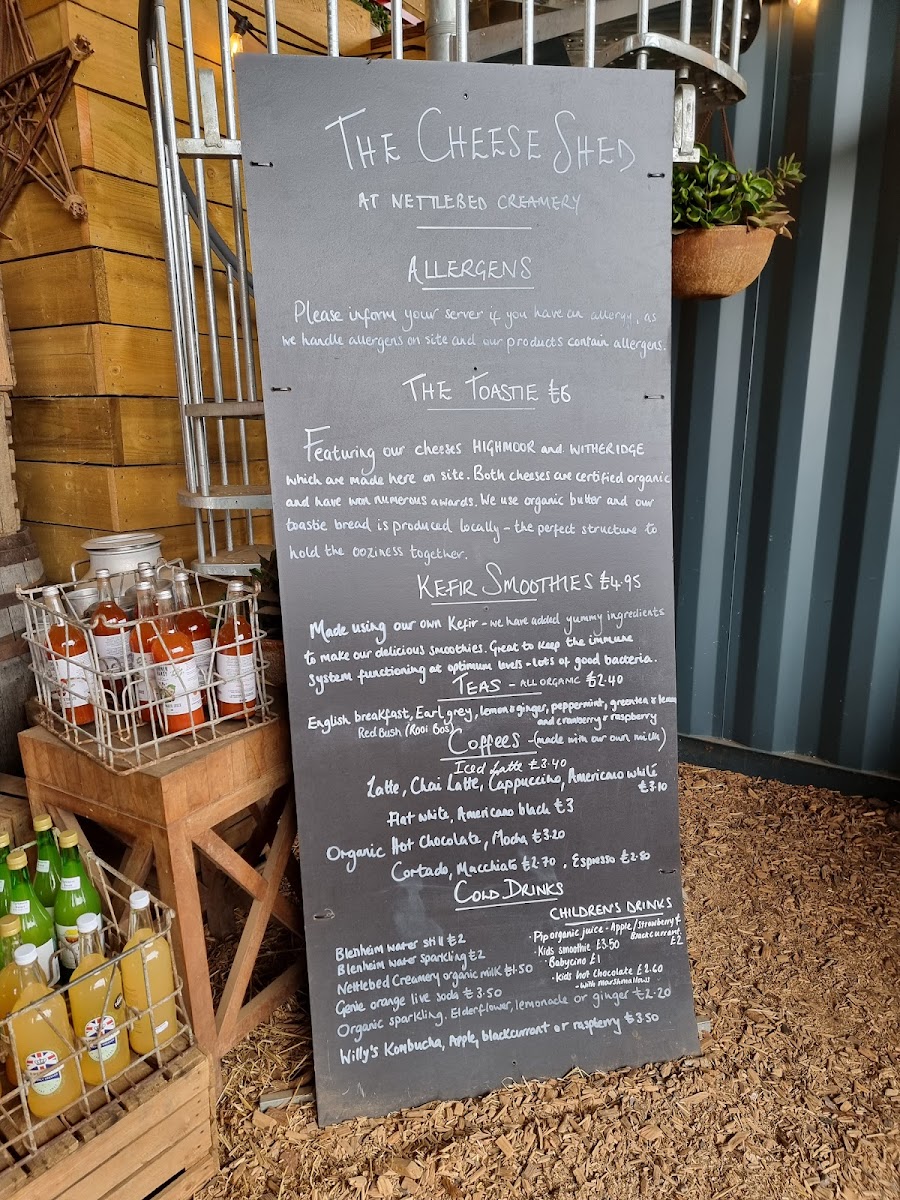 THE CHEESE SHED
AT NETTLEBED CREAMERY
ALLERGENS
Please inform your server if you have an allergy, as
we handle allergens on site and our products contain allergens.
THE TOASTIE £6
Featuring our cheeses HIGHMOOR and WITHERIDGE
which are made here on site. Both cheeses are certified organic
and have won numerous awards. We use organic butter and our
toastie bread is produced locally - the perfect structure to
hold the ooziness together.
KEFIR SMOOTHIES £4.95
Made using our own Kefir - we have added yummy ingredients
to make our delicious smoothies. Great to keep the immune
system functioning at optimum levels - lots of good bacteria.
TEAS - ALL ORGANIC £2.40
English breakfast, Earl grey, lemon & ginger, peppermint, green tea & lemon
Red Bush (Rooi Bos) and cranberry & raspberry
Coffees - (made with our own milk)
Iced Latte £3.40
Latte, Chai Latte, Cappuccino, Americano white
£3.10
Flat white, Americano black £3
Organic Hot Chocolate, Mocha £3.20
Cortado, Macchiato £2.70, Espresso £2.50
COLD DRINKS
CHILDREN'S DRINKS
• Pip organic juice - Apple/Strawberry &
Blackcurrant
£2
• Kids smoothie £3.50
• Babycino £1
• Kids hot Chocolate £2.60
- with marshmallows
Blenheim water still £2
Blenheim water sparkling £2
Nettlebed Creamery organic milk £1.50
Genie orange live soda £3.50
Organic sparkling. Elderflower, lemonade or ginger £2.20
Willy's Kombucha, Apple, blackcurrant or raspberry £3.50